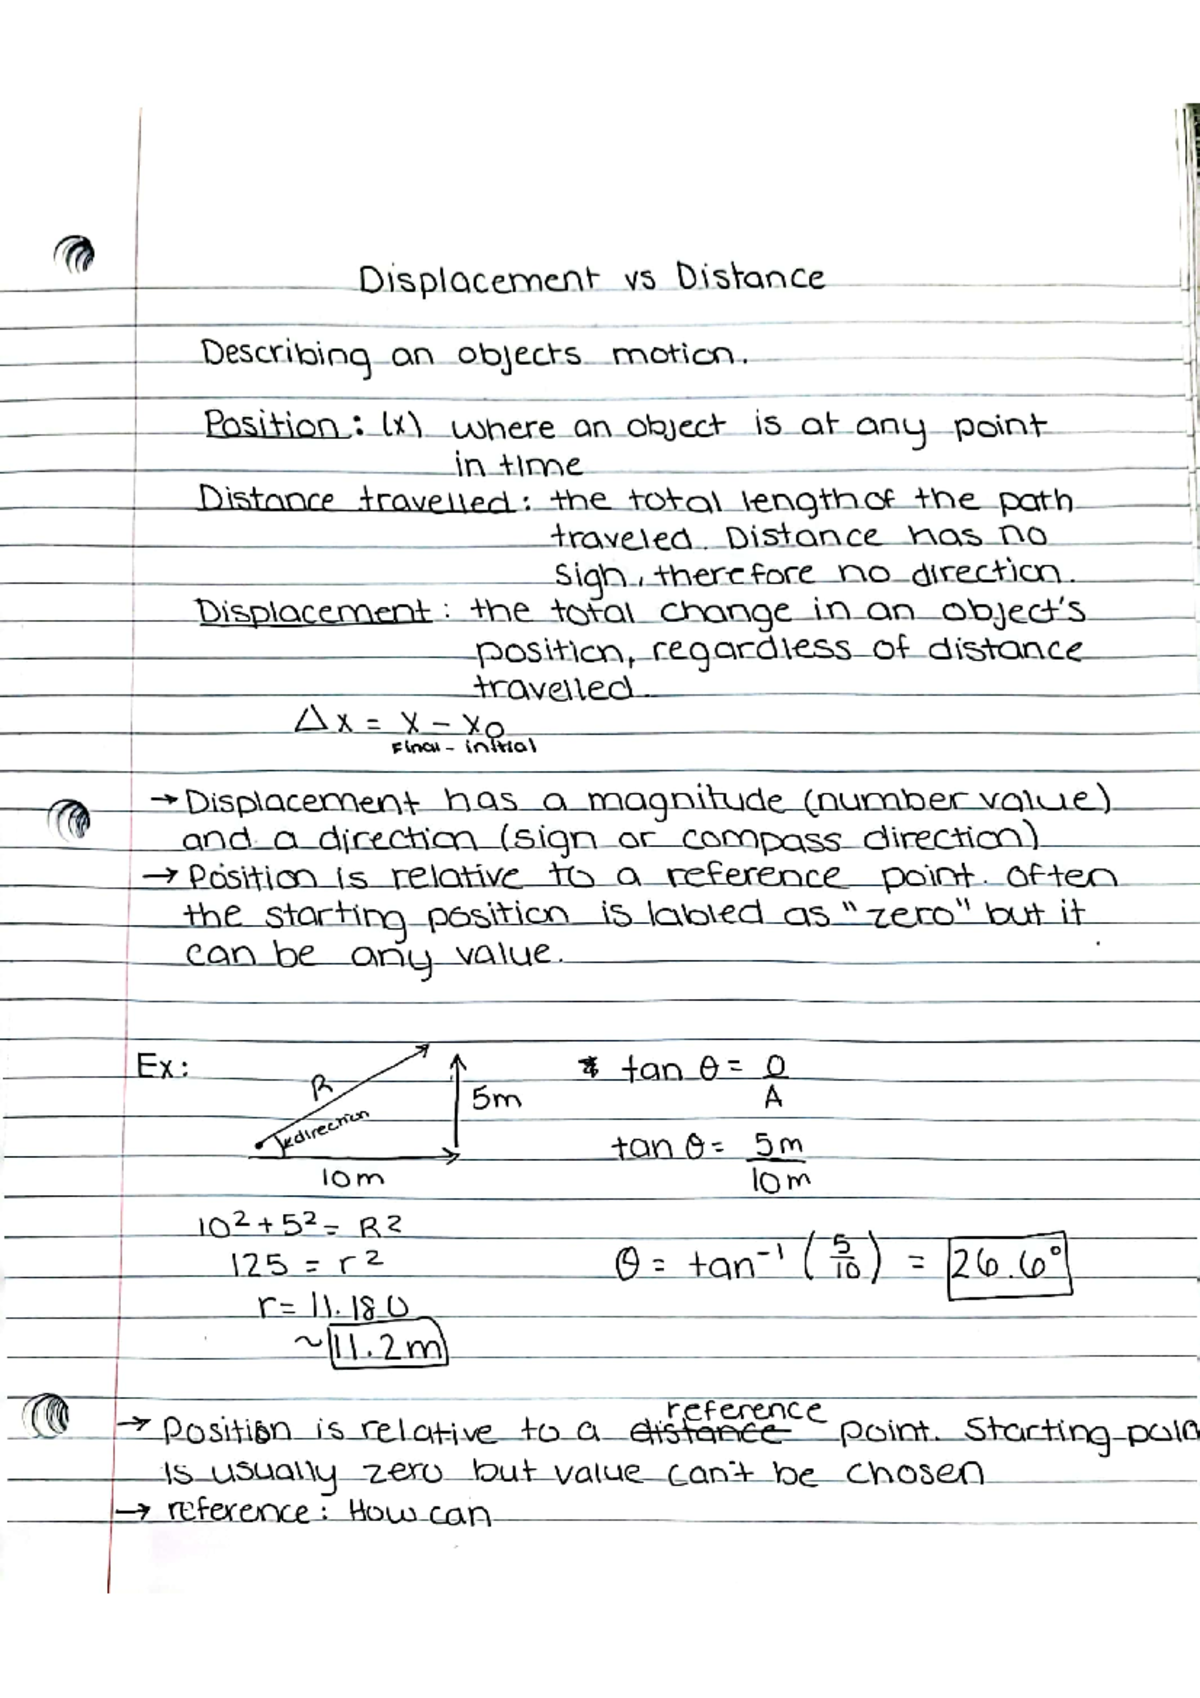 Displacement vs Distance
Describing an objects motion.
Position: (x) where an object is at any point
in time
Distance travelled: the total length of the path
traveled. Distance has no
sign, therefore no direction.
Displacement: the total change in an object's
position, regardless of distance
travelled.
Δx = x - x₀
Final - initial
→ Displacement has a magnitude (number value)
and a direction (sign or compass direction)
→ Position is relative to a reference point. Often
the starting position is labled as "zero" but it
can be any value.
Ex:
R
direction
5m
10m
* tan θ = O/A
tan θ = 5m/10m
10² + 5² = R²
125 = r²
r = 11.180
~ 11.2m
θ = tan⁻¹ (5/10) = 26.6°
reference
→ Position is relative to a distance point. Starting poin
is usually zero but value can't be chosen
→ reference: How can